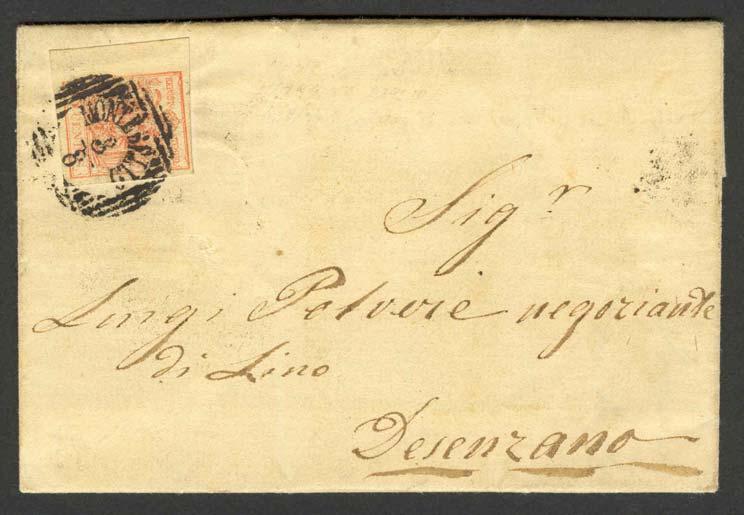 Sig.r
Luigi Polvere negoziante
di Lino
Desenzano